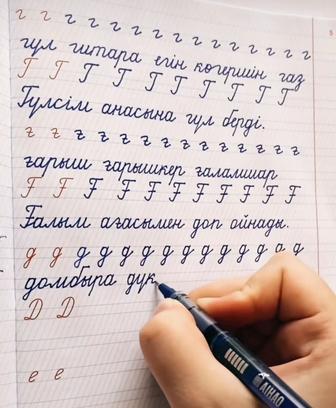 г г г г г г г г г г г г г г
гүл гитара егін көгершін газ
Г Г Г Г Г Г Г Г Г Г
Гүлсім анасына гүл берді.
ғ ғ ғ ғ ғ ғ ғ ғ ғ ғ ғ ғ ғ
ғарыш ғарышкер ғаламшар
Ғ Ғ Ғ Ғ Ғ Ғ Ғ Ғ Ғ Ғ
Ғалым ағасымен доп ойнады.
д д д д д д д д д д д д д
домбыра дүк
Д Д
е е